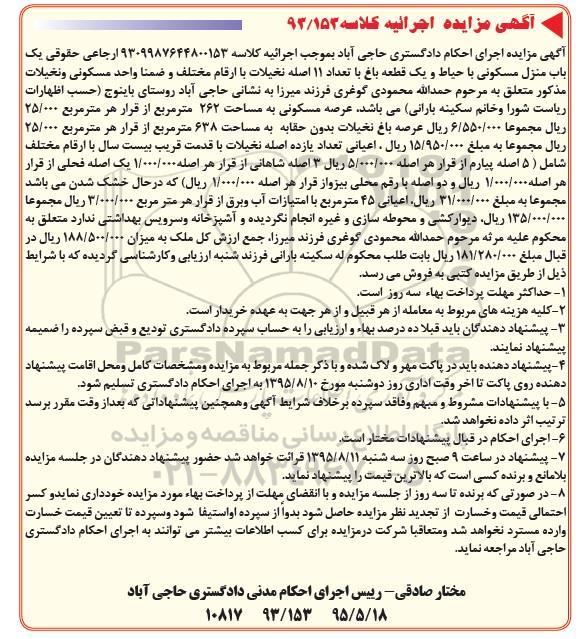 آگهی مزایده اجرائیه کلاسه ۹۳/۱۵۳
آگهی مزایده اجرای احکام دادگستری حاجی آباد بموجب اجرائیه کلاسه ۹۳۰۹۹۸۷۶۴۴۸۰۰۱۵۳ ارجاعی حقوقی یک
باب منزل مسکونی با حیاط و یک قطعه باغ با تعداد ۱۱ اصله نخیلات با ارقام مختلف و ضمنا واحد مسکونی ونخیلات
مذکور متعلق به مرحوم حمدالله محمودی گوغری فرزند میرزا به نشانی حاجی آباد روستای باینوج (حسب اظهارات
ریاست شورا وخانم سکینه بارانی) می باشد، عرصه مسکونی به مساحت ۲۶۲ مترمربع از قرار هر مترمربع ۲۵/۰۰۰
ریال مجموعا ۶/۵۵۰/۰۰۰ ریال عرصه باغ نخیلات بدون حقابه به مساحت ۶۳۸ مترمربع از قرار هر مترمربع ۲۵/۰۰۰
ریال مجموعا به مبلغ ۱۵/۹۵۰/۰۰۰ ریال ، اعیانی تعداد یازده اصله نخیلات با قدمت قریب بیست سال با ارقام مختلف
شامل ( ۵ اصله پیارم از قرار هر اصله ۵/۰۰۰/۰۰۰ ریال ۳ اصله شاهانی از قرار هر اصله ۱/۰۰۰/۰۰۰ یک اصله فحلی از قرار
هر اصله۱/۰۰۰/۰۰۰ ریال و دو اصله با رقم محلی بیزواز قرار هر اصله ۱/۰۰۰/۰۰۰ ریال) که درحال خشک شدن می باشد
مجموعا به مبلغ ۳۱/۰۰۰/۰۰۰ ریال، اعیانی ۴۵ مترمربع با امتیازات آب وبرق از قرار هر متر مربع ۳/۰۰۰/۰۰۰ ریال مجموعا
۱۳۵/۰۰۰/۰۰۰ ریال، دیوارکشی و محوطه سازی و غیره انجام نگردیده و آشپزخانه وسرویس بهداشتی ندارد متعلق به
محکوم علیه مرثه مرحوم حمدالله محمودی گوغری فرزند میرزا، جمع ارزش کل ملک به میزان ۱۸۸/۵۰۰/۰۰۰ ریال در
قبال مبلغ ۱۸۱/۲۸۰/۰۰۰ ریال بابت طلب محکوم له سکینه بارانی فرزند شنبه ارزیابی وکارشناسی گردیده که با شرایط
ذیل از طریق مزایده کتبی به فروش می رسد.
۱- حداکثر مهلت پرداخت بهاء سه روز است.
۲-کلیه هزینه های مربوط به معامله از هر قبیل و از هر جهت به عهده خریدار است.
۳- پیشنهاد دهندگان باید قبلا ده درصد بهاء و ارزیابی را به حساب سپرده دادگستری تودیع و قبض سپرده را ضمیمه
پیشنهاد نمایند.
۴-پیشنهاد دهنده باید در پاکت مهر و لاک شده و با ذکر جمله مربوط به مزایده ومشخصات کامل ومحل اقامت پیشنهاد
دهنده روی پاکت تا آخر وقت اداری روز دوشنبه مورخ ۱۳۹۵/۸/۱۰ به اجرای احکام دادگستری تسلیم شود.
۵- با پیشنهادات مشروط و مبهم وفاقد سپرده برخلاف شرایط آگهی وهمچنین پیشنهاداتی که بعداز وقت مقرر برسد
ترتیب اثر داده نخواهد شد.
۶- اجرای احکام در قبال پیشنهادات مختار است.
۷- پیشنهاد در ساعت ۹ صبح روز سه شنبه ۱۳۹۵/۸/۱۱ قرائت خواهد شد حضور پیشنهاد دهندگان در جلسه مزایده
بلامانع و برنده کسی است که بالاترین قیمت را پیشنهاد نماید.
۸- در صورتی که برنده تا سه روز از جلسه مزایده و با انقضای مهلت از پرداخت بهاء مورد مزایده خودداری نمایدو کسر
احتمالی قیمت وخسارت از تجدید نظر مزایده حاصل شود بدوا از سپرده اواستیفا شود وسپرده تا تعیین قیمت خسارت
وارده مسترد نخواهد شد ومتعاقبا شرکت درمزایده برای کسب اطلاعات بیشتر می توانند به اجرای احکام دادگستری
حاجی آباد مراجعه نماید.
مختار صادقی– رییس اجرای احکام مدنی دادگستری حاجی آباد
۹۵/۵/۱۸ ۹۳/۱۵۳ ۱۰۸۱۷
ParsNamadData